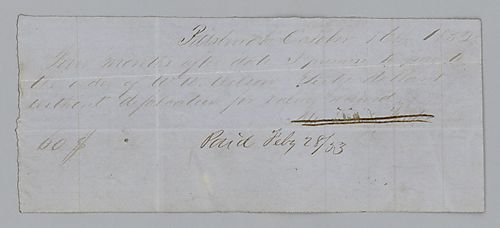 Pittsburgh October 1852
Four months after date I promise to pay to
the order of W. W. Wilson Sixty dollars
without defalcation for value received
60 $
Paid Feby 28/53